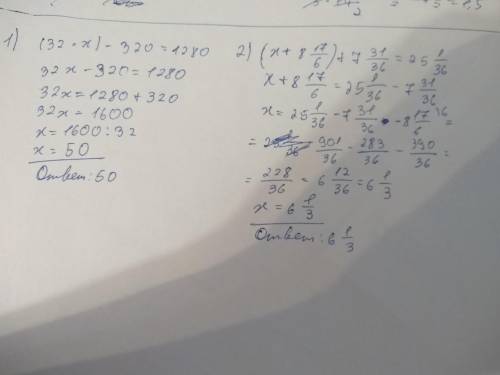 1) (32 · x) - 320 = 1280
32x - 320 = 1280
32x = 1280 + 320
32x = 1600
x = 1600 : 32
x = 50
Ответ: 50
2) (x + 8 17/6) + 7 31/36 = 25 1/36
x + 8 17/6 = 25 1/36 - 7 31/36
x = 25 1/36 - 7 31/36 - 8 17/6 =
= 901/36 - 283/36 - 390/36 =
= 228/36 = 6 12/36 = 6 1/3
x = 6 1/3
Ответ: 6 1/3